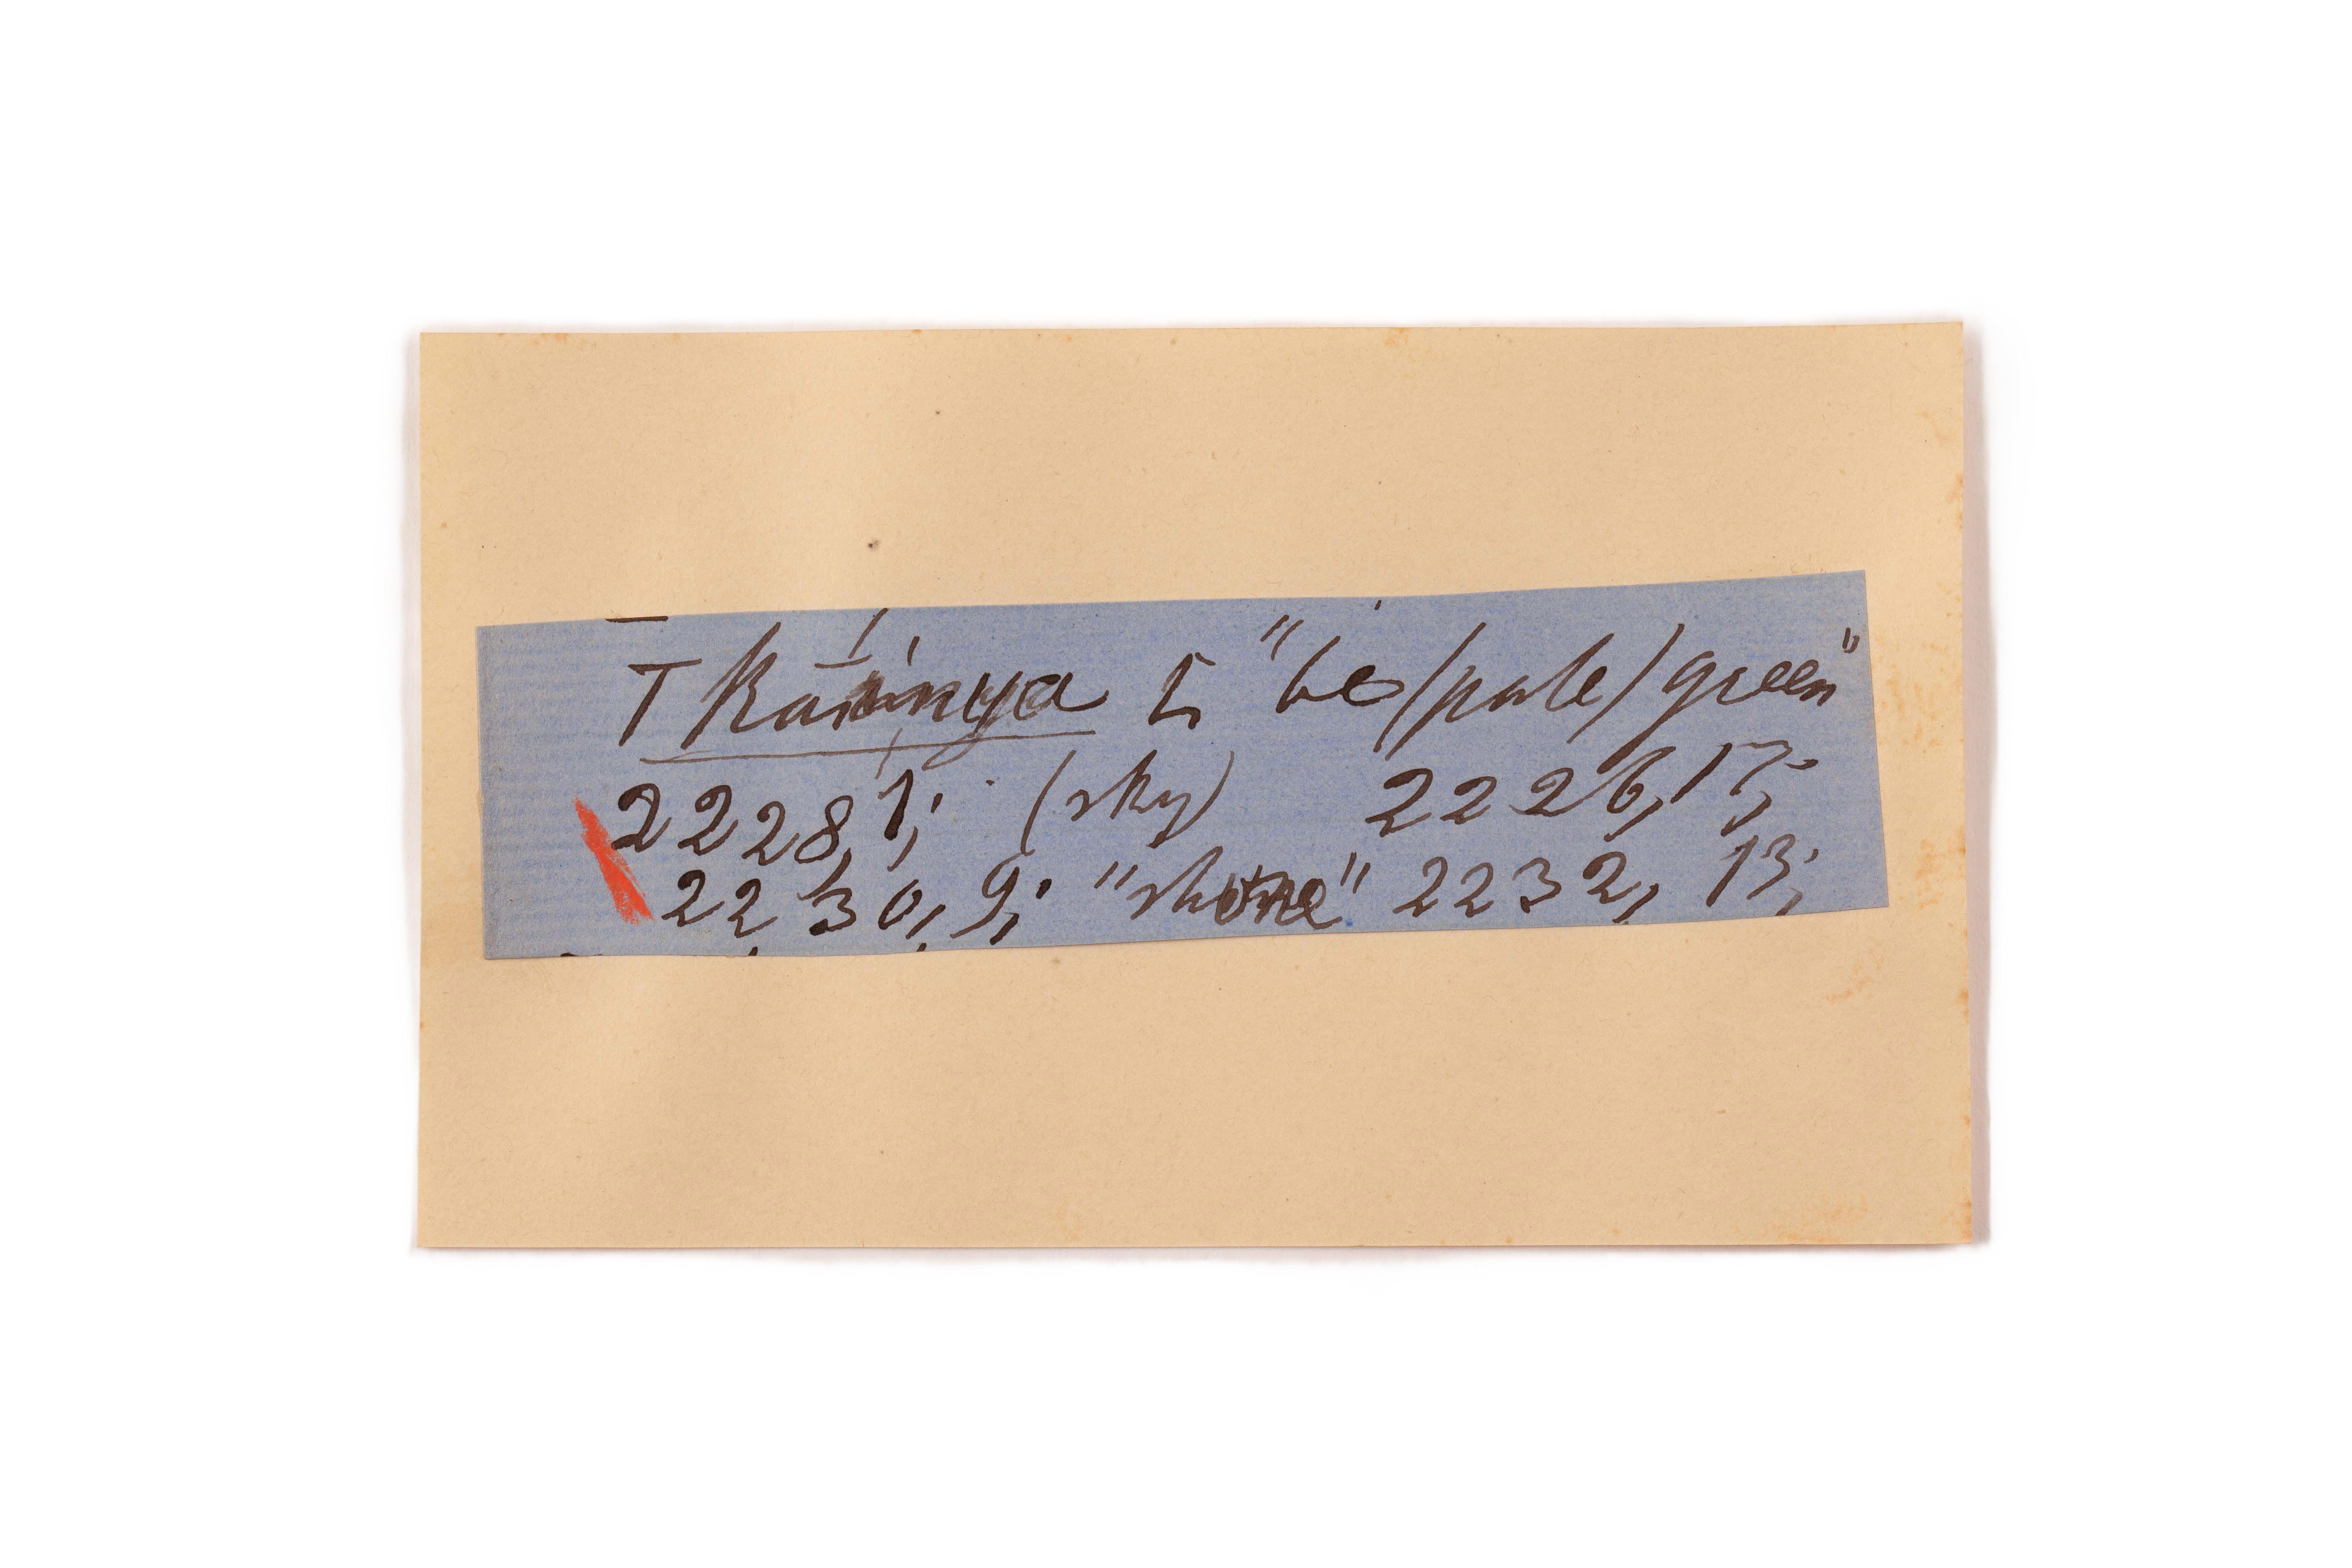 T kāińya to "be (pale) green"
2228, 1; (sky) 2226, 17;
2230, 9; "shone" 2232, 13;